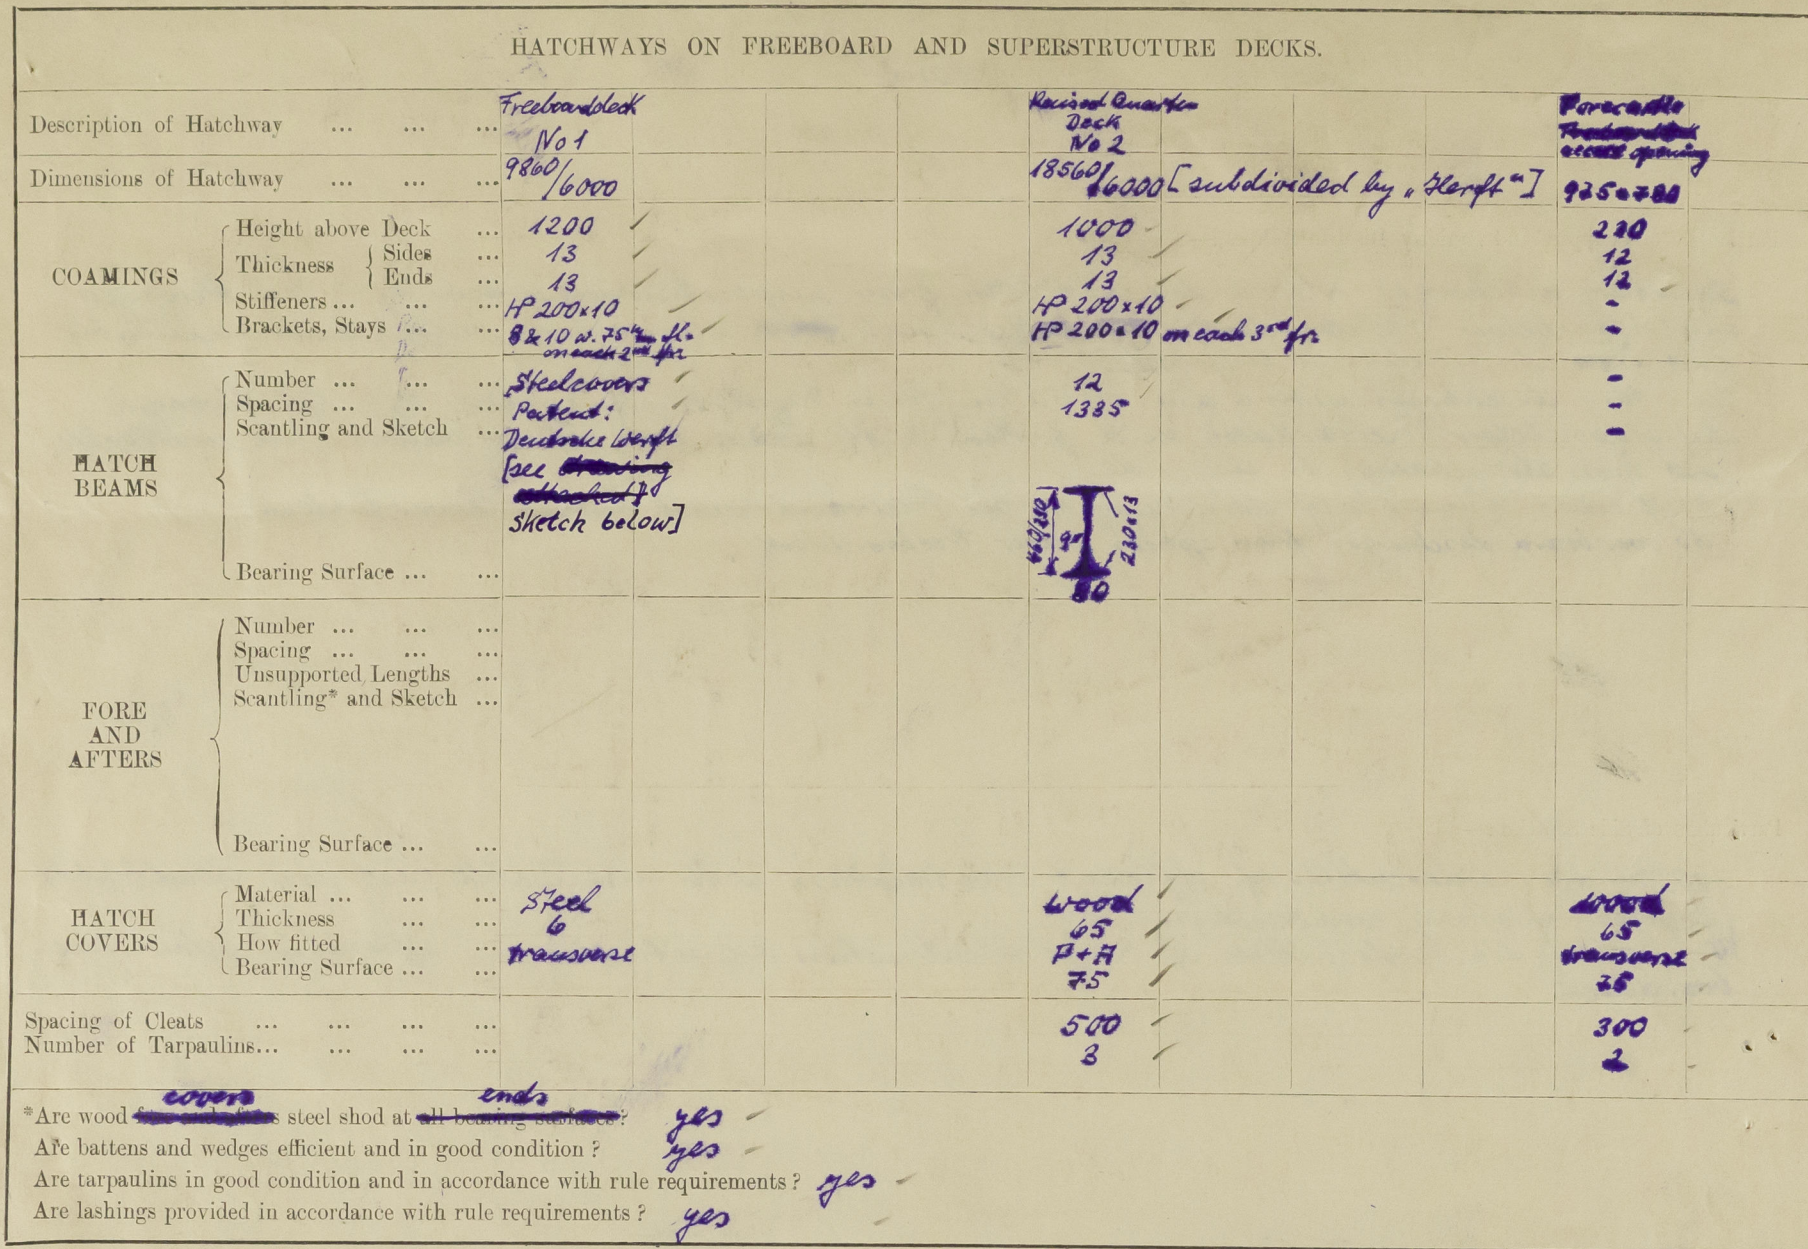 HATCHWAYS ON FREEBOARD AND SUPERSTRUCTURE DECKS.
Description of Hatchway ... ... ... Freeboarddeck No 1 Raised Quarter Deck No 2 Forecastle access opening
Dimensions of Hatchway ... ... ... 9860/6000 18560/6000 [subdivided by „Herft"] 975x780
COAMINGS
Height above Deck ... 1200 1000 220
Thickness { Sides ... 13 13 12
Ends ... 13 13 12
Stiffeners ... ... ... HP 200x10 HP 200x10 -
Brackets, Stays ... ... 8 & 10 w. 75 mm fl. on each 2nd fr. HP 200x10 on each 3rd fr. -
HATCH BEAMS
Number ... ... ... Steelcovers 12 -
Spacing ... ... ... Patent: 1335 -
Scantling and Sketch ... Deutsche Werft -
[see drawing
attached]
sketch below]
460/230 9 230x13
Bearing Surface ... ... 80
FORE AND AFTERS
Number ... ... ...
Spacing ... ... ...
Unsupported Lengths ...
Scantling* and Sketch ...
Bearing Surface ... ...
HATCH COVERS
Material ... ... ... Steel wood wood
Thickness ... ... 6 65 65
How fitted ... ... transverse F+A transverse
Bearing Surface ... ... 75 75
Spacing of Cleats ... ... ... ... 500 300
Number of Tarpaulins... ... ... ... 3 2
covers ends
*Are wood fore and afters steel shod at all bearing surfaces? yes
Are battens and wedges efficient and in good condition ? yes
Are tarpaulins in good condition and in accordance with rule requirements ? yes
Are lashings provided in accordance with rule requirements ? yes